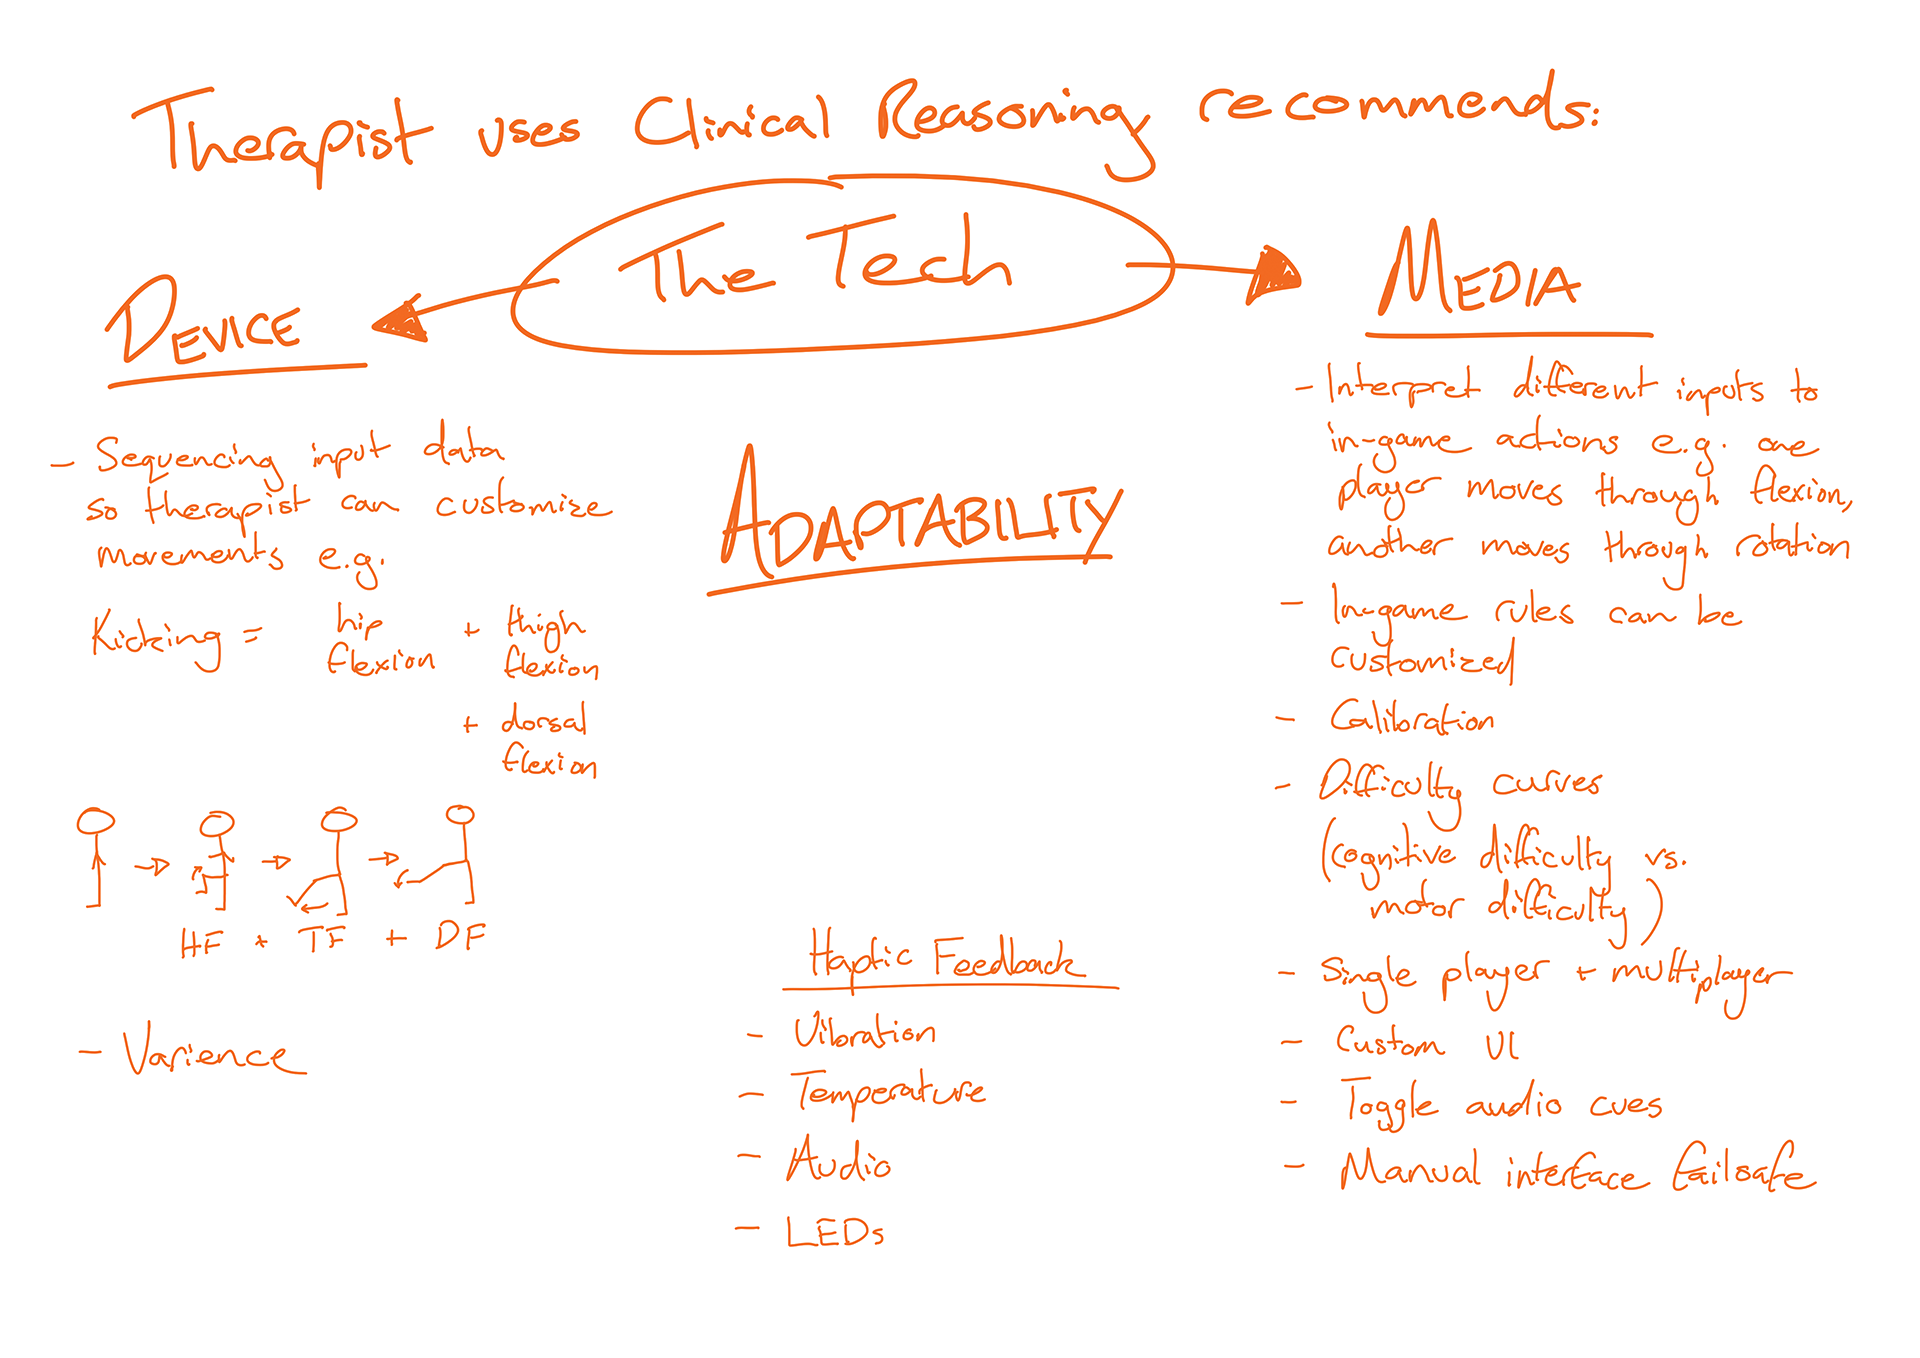 Therapist uses Clinical Reasoning recommends:
The Tech
DEVICE
- Sequencing input data
so therapist can customize
movements e.g.
Kicking = hip flexion + thigh flexion
+ dorsal flexion
HF + TF + DF
- Varience
ADAPTABILITY
Haptic Feedback
- Vibration
- Temperature
- Audio
- LEDs
MEDIA
- Interpret different inputs to
in-game actions e.g. one
player moves through flexion,
another moves through rotation
- In-game rules can be
customized
- Calibration
- Difficulty curves
(cognitive difficulty vs.
motor difficulty)
- Single player + multiplayer
- Custom UI
- Toggle audio cues
- Manual interface failsafe